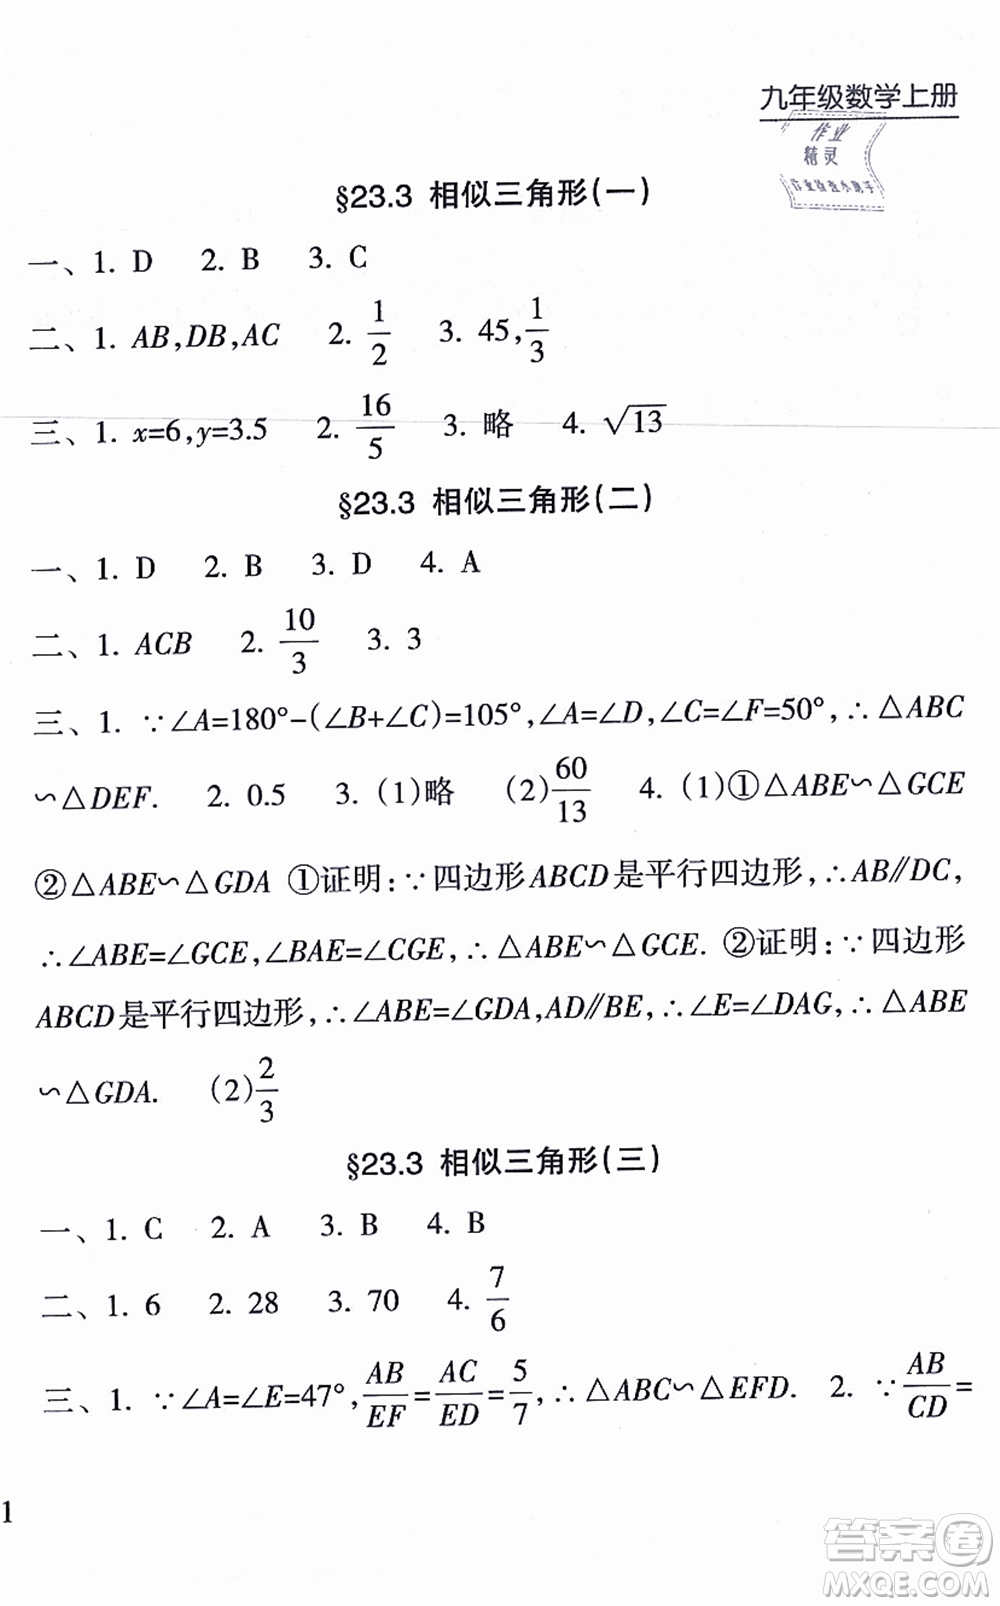 九年级数学上册
作业
精灵
作业检查小助手
§23.3 相似三角形(一)
一、1. D 2. B 3. C
二、1. AB,DB,AC 2. 1/2 3. 45,1/3
三、1. x=6,y=3.5 2. 16/5 3. 略 4. √13
§23.3 相似三角形(二)
一、1. D 2. B 3. D 4. A
二、1. ACB 2. 10/3 3. 3
三、1. ∵∠A=180°-(∠B+∠C)=105°,∠A=∠D,∠C=∠F=50°,∴△ABC
∽△DEF. 2. 0.5 3. (1)略 (2)60/13 4. (1)①△ABE∽△GCE
②△ABE∽△GDA ①证明:∵四边形ABCD是平行四边形,∴AB∥DC,
∴∠ABE=∠GCE,∠BAE=∠CGE,∴△ABE∽△GCE. ②证明:∵四边形
ABCD是平行四边形,∴∠ABE=∠GDA,AD∥BE,∴∠E=∠DAG,∴△ABE
∽△GDA. (2)2/3
§23.3 相似三角形(三)
一、1. C 2. A 3. B 4. B
二、1. 6 2. 28 3. 70 4. 7/6
三、1. ∵∠A=∠E=47°,AB/EF=AC/ED=5/7,∴△ABC∽△EFD. 2. ∵AB/CD=
1
答案卷
MXQE.COM